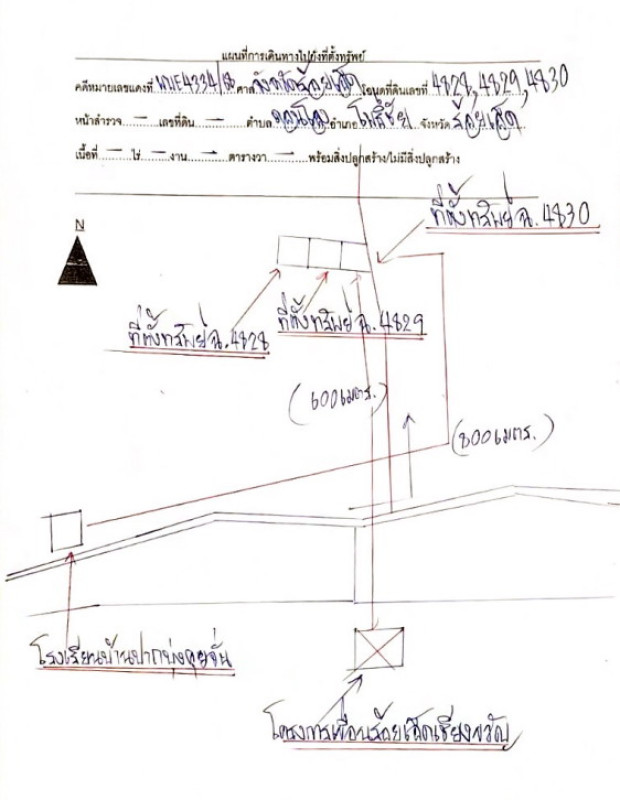 แผนที่การเดินทางไปยังที่ตั้งทรัพย์
คดีหมายเลขแดงที่ ผบE4334/68 ศาลจังหวัดร้อยเอ็ด โฉนดที่ดินเลขที่ 4828,4829,4830
หน้าสำรวจ — เลขที่ดิน — ตำบล ดอนโอง อำเภอ โพธิ์ชัย จังหวัด ร้อยเอ็ด
เนื้อที่ — ไร่ — งาน — ตารางวา — พร้อมสิ่งปลูกสร้าง/ไม่มีสิ่งปลูกสร้าง
N
ที่ตั้งทรัพย์ ฉ. 4830
ที่ตั้งทรัพย์ ฉ. 4829
ที่ตั้งทรัพย์ ฉ. 4828
(600 เมตร.)
(800 เมตร.)
โรงเรียนบ้านปากบุ่ง
โครงการเขื่อนร้อยเอ็ดเชียงขวัญ